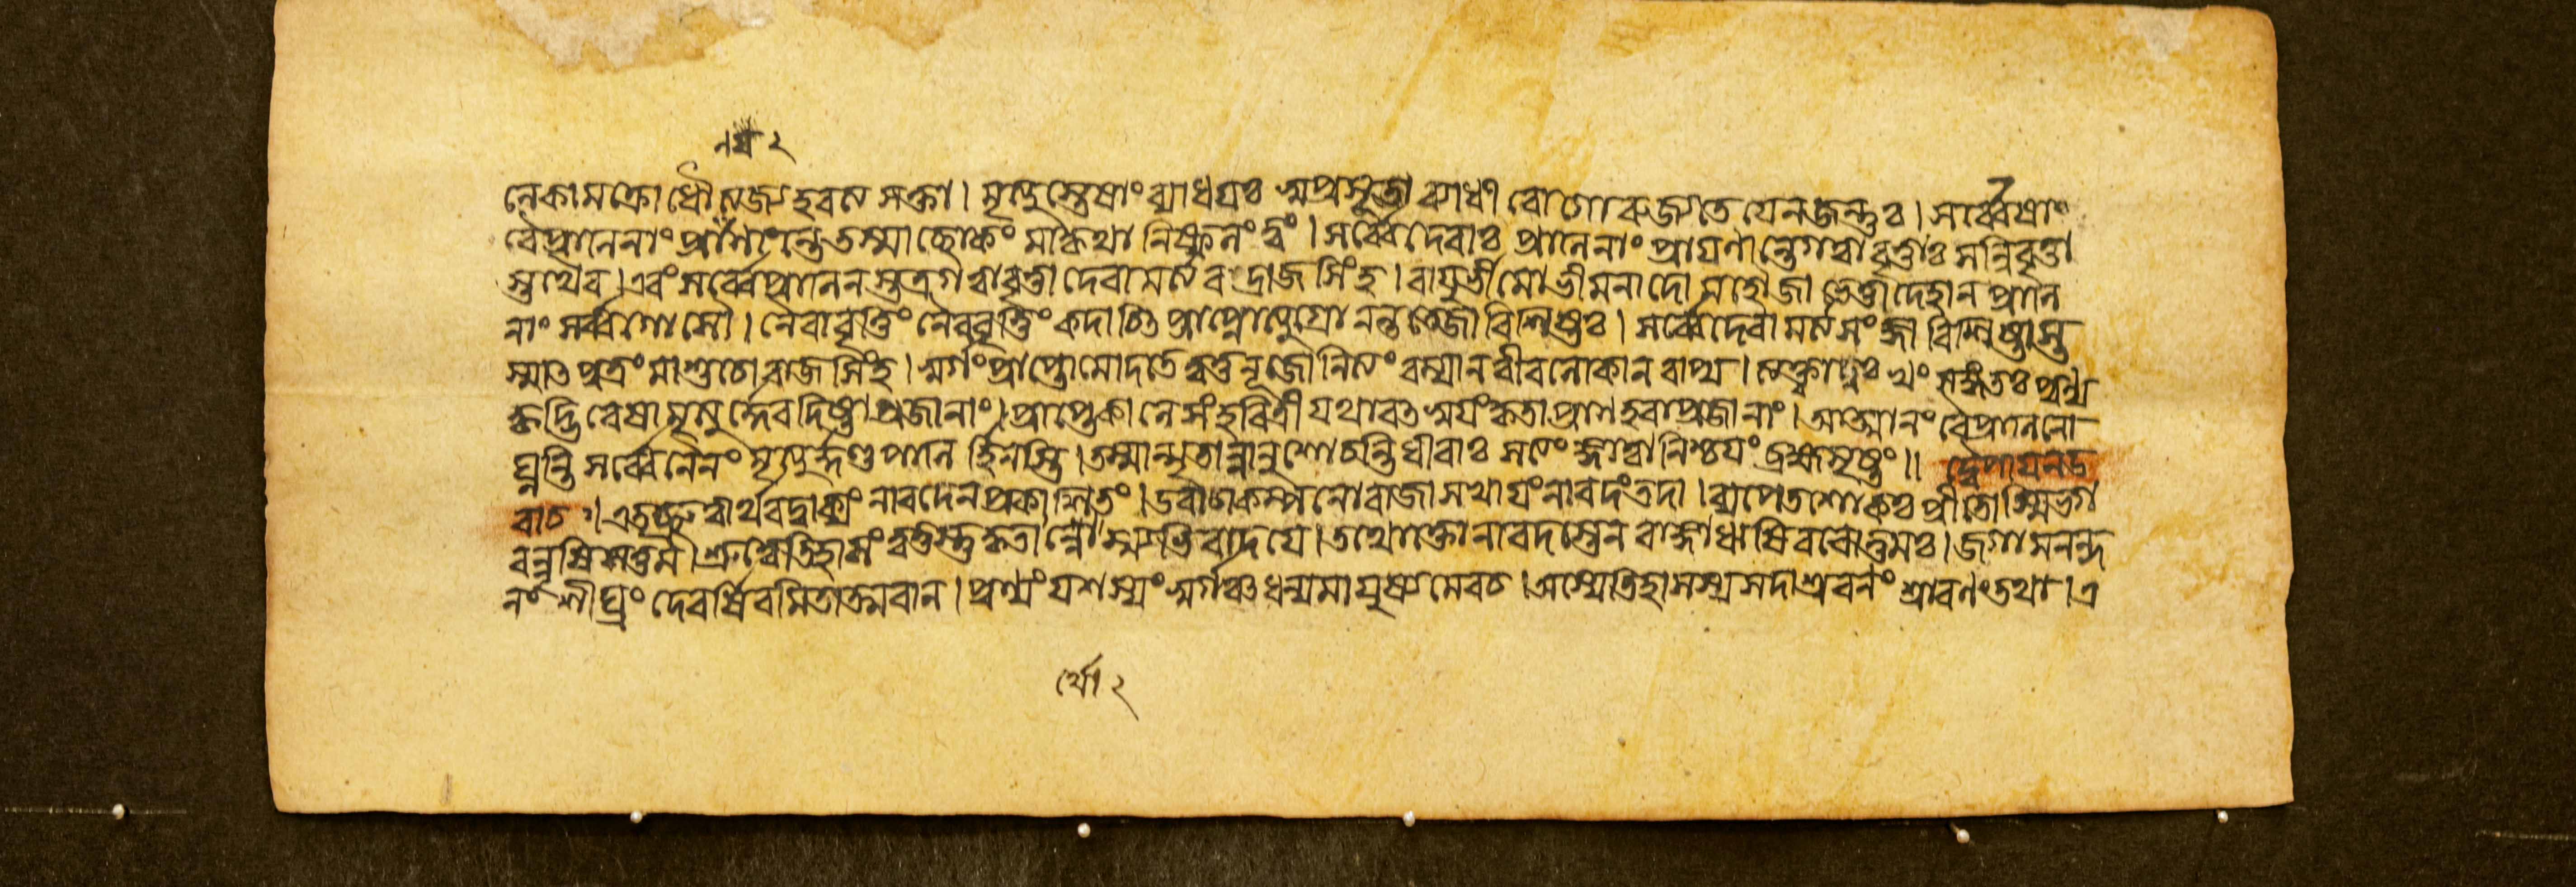 ণয় ২
লৈকামক্রোধৌ ত্যজ্য হরত্যসক্তা। মৃত্যুস্তেষাং ব্যাধয়ঃ অপ্রসূতা ব্যাধী রোগোরুজ্যতে যেন জন্তুঃ। সর্ব্বেষাং
বৈপ্রাণিনাং প্রায়ণান্তে তস্মাচ্ছোকং মাকৃথা নিষ্ফলং ত্বং। সর্ব্বেদেবাঃ প্রাণিনাং প্রায়ণান্তেগত্বাবৃত্তাঃ সন্নিবৃত্তা
স্তথৈব।এবং সর্ব্বেপ্রাণিনস্তত্রগত্বাবৃত্তা দেবামর্ত্যবদ্রাজসিংহ। বায়ুর্ভীমোভীমনাদো মহৌজা ভেত্তাদেহান প্রাণি
নাং সর্ব্বগোসৌ। নৈবাবৃত্তিং নৈববৃত্তিং কদাচিৎ প্রাপ্নোত্যুগ্রোনন্ততেজাবিশিষ্টঃ। সর্ব্বেদেবামর্ত্যসংজ্ঞা বিশিষ্টাস্ত
স্মাৎপুত্রং মাশুচোরাজসিংহ। স্বর্গং প্রাপ্তোমোদতে ত্বত্তনূজোনিত্যং রম্যানবীরলোকানবাপ্য। ত্যক্ত্বাদুঃখং সঙ্গতঃ পুণ্য
কৃদ্ভিরেষামৃত্যুর্দ্দেবদিষ্টাপ্রজানাং। প্রাপ্তেকালে সংহরিত্রী যথাবৎ স্বয়ংকৃতাপ্রাণহরাপ্রজানাং। আত্মানং বৈপ্রাণিনো
ঘ্নন্তি সর্ব্বেনৈনং মৃত্যুর্দ্দণ্ডপাণির্হিনস্তি। তস্মান্মৃতান্নানুশোচন্তি ধীরাঃ সত্যং জ্ঞাত্বানিশ্চয়ং ব্রহ্মসৃষ্টং॥ দ্বৈপায়নউ
বাচ ।এতচ্ছ্রুত্বার্থবদ্বাক্যং নারদেনপ্রকাশিতং।উবাচাকম্পনোরাজাসখায়ং নারদংতদা। ব্যপেতশোকঃ প্রীতোস্মিভগ
বন্নৃষিসত্তম।শ্রুত্বেতিহাসং ত্বত্তস্তুকৃতার্থোস্ম্যভিবাদয়ে। তথোক্তোনারদস্তেনরাজ্ঞাঋষিবরোত্তমঃ।জগামনন্দ
নং শীঘ্রং দেবর্ষিরমিতাত্মবান। পুণ্যং যশস্যং স্বর্গঞ্চধন্যমায়ুষ্যমেবচ।অস্যেতিহাসস্যসদাশ্রবণং শ্রাবণংতথা।এ
র্থো ২